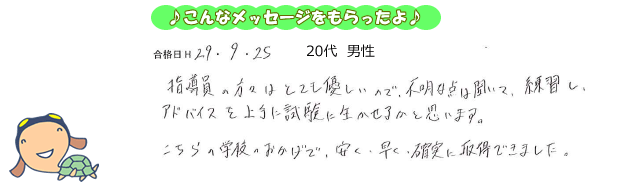 ♪こんなメッセージをもらったよ♪
合格日H 29.9.25 20代 男性
指導員の方々はとても優しいので、不明な点は聞いて、練習し、
アドバイスを上手に試験に生かせるかと思います。
こちらの学校のおかげで、安く・早く・確実に取得できました。